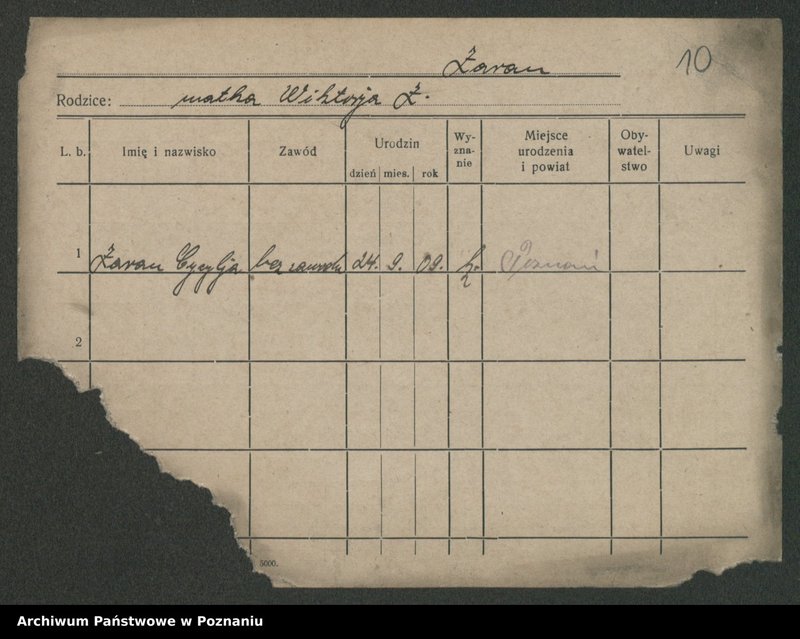 Żaran
10
Rodzice: matka Wiktorja Ż.
L. b.
Imię i nazwisko
Zawód
Urodzin
dzień mies. rok
Wy-
zna-
nie
Miejsce
urodzenia
i powiat
Oby-
watel-
stwo
Uwagi
1 Żaran Cecylja bez zawodu 24. 9. 09. k. Poznań
2
5000.
Archiwum Państwowe w Poznaniu